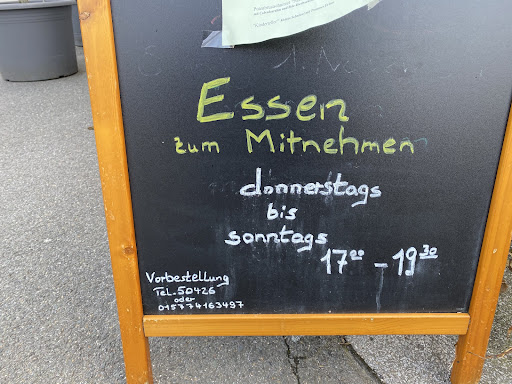 Essen
zum Mitnehmen
donnerstags
bis
sonntags
17⁰⁰ - 19³⁰
Vorbestellung
Tel. 50426
oder
015774163497